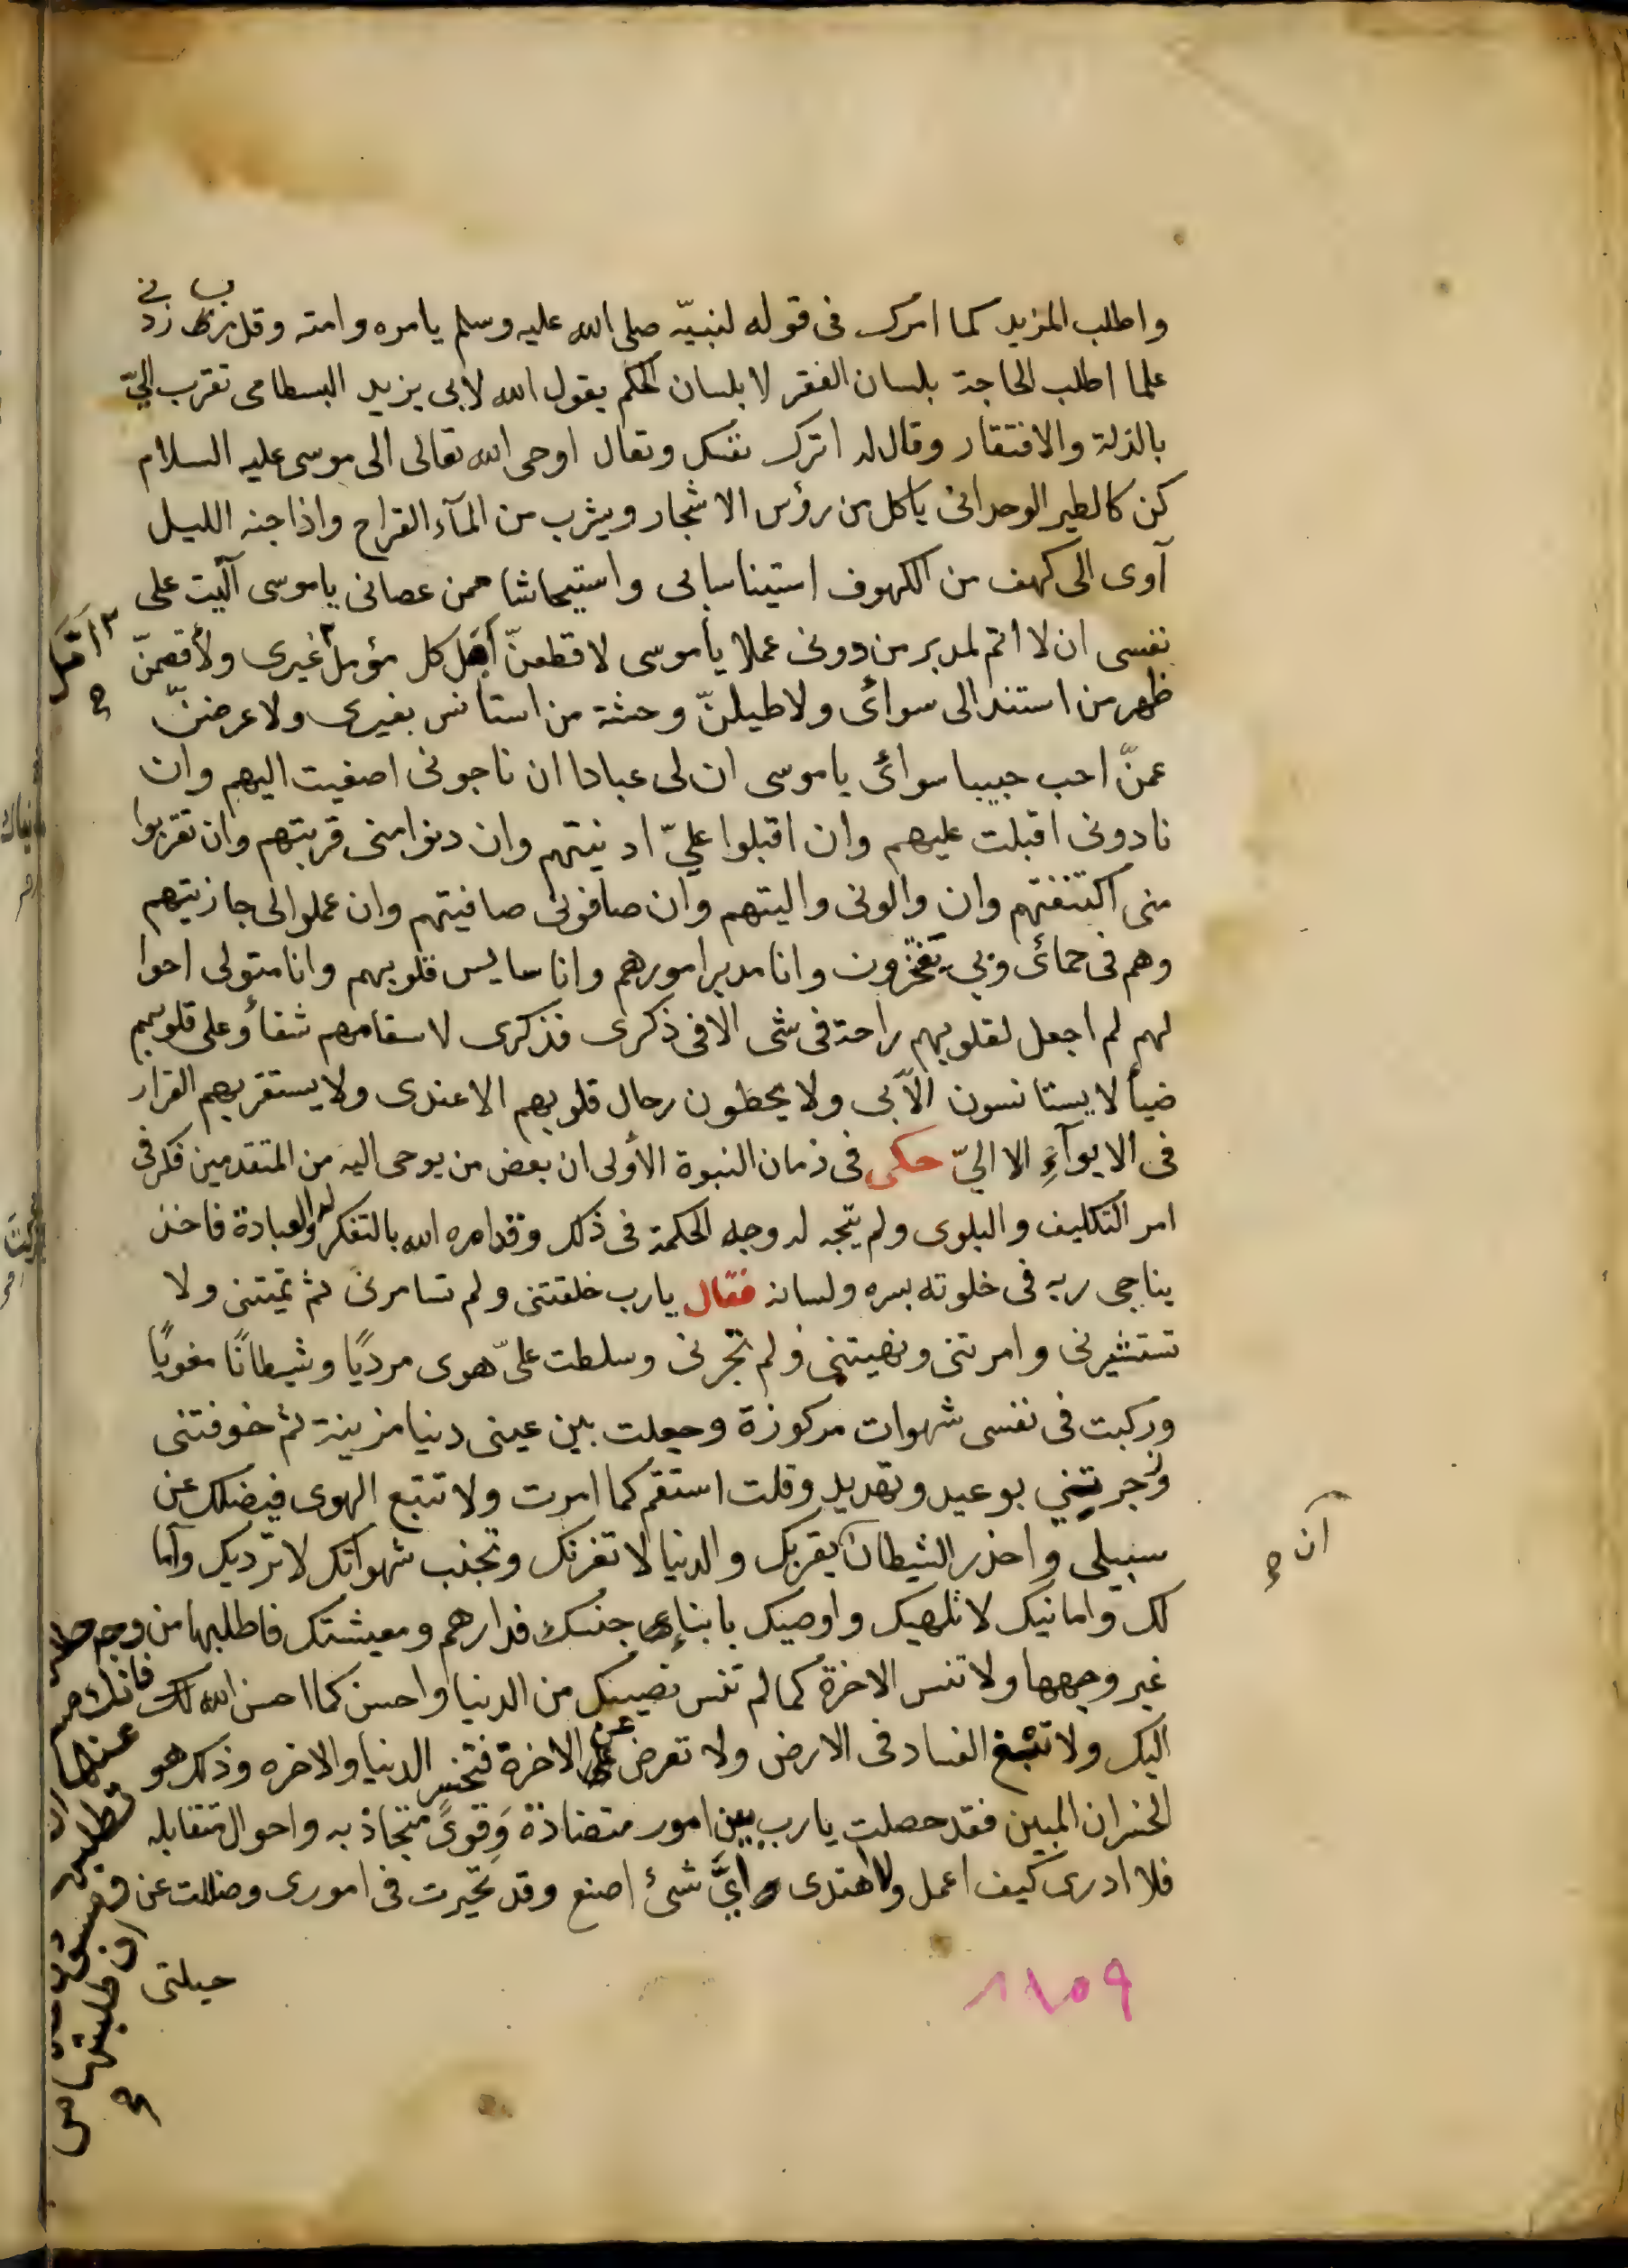 واطلب المزيد كما امرك فى قوله لنبيّه صلى الله عليه وسلم يامره وامته وقل رب زدنى
علما اطلب الحاجة بلسان الفقر لا بلسان الحكم يقول الله لابى يزيد البسطامى تقرب اليّ
بالذلة والافتقار وقال له اترك نفسك وتعال اوحى الله تعالى الى موسى عليه السلام
كن كالطير الوحدانى ياكل من رؤس الاشجار ويشرب من المآء القراح واذا جنه الليل
آوى الى كهف من الكهوف استيناسا بى واستيحاشا ممن عصانى ياموسى آليت على
نفسى ان لا اتم لمدبر من دونى عملا ياموسى لاقطعنّ امل كل مؤمل غيرى ولأقصمنّ
ظهر من استند الى سوائى ولاطيلنّ وحشة من استأنس بغيرى ولاعرضنّ
عمنّ احب حبيبا سوائى ياموسى ان لى عبادا ان ناجونى اصغيت اليهم وان
نادونى اقبلت عليهم وان اقبلوا عليّ ادنيتهم وان دنوا منى قربتهم وان تقربوا
منى اكتنفتهم وان والونى واليتهم وان صافونى صافيتهم وان عملوا لى جازيتهم
وهم فى حمائى وبى يفتخرون وانا مدبر امورهم وانا سايس قلوبهم وانا متولى احوا
لهم لم اجعل لقلوبهم راحة فى شى الا فى ذكرى فذكرى لاسقامهم شفأ وعلى قلوبهم
ضيأ لا يستانسون الّا بى ولا يحطون رحال قلوبهم الا عندى ولا يستقر بهم القرار
فى الايوآءِ الا اليّ حكى فى زمان النبوة الأولى ان بعض من يوحى اليه من المتقدمين فكر فى
امر التكليف والبلوى ولم يتّجه له وجه الحكمة فى ذلك وقد امره الله بالتفكر له والعبادة فاخذ
يناجى ربه فى خلوته بسره ولسانه فقال يارب خلقتنى ولم تسامرنى ثم تميتنى ولا
تستشيرنى وامرتنى ونهيتنى ولم تخيرنى وسلطت علىّ هوى مرديًا وشيطانًا مغويًا
وركبت فى نفسى شهوات مركوزة وجعلت بين عينى دنيا مزينة ثم خوفتنى
وزجرتني بوعيد وتهديد وقلت استقم كما امرت ولا تتبع الهوى فيضلك عن
سبيلى واحذر الشيطان يقربك والدنيا لا تغرنك وتجنب شهواتك لا ترديك وآما
لك وامانيك لا تلهيك واوصيك بابنآء جنسك فدارهم ومعيشتك فاطلبها من وجه حلال
غير وجهها ولا تنس الاخرة كما لم تنس نصيبك من الدنيا واحسن كما احسن الله
اليك ولا تبغ الفساد فى الارض ولا تعرض عن الاخرة فتخسر الدنيا والاخره وذلك هو
الخسران المبين فقد حصلت يارب بين امور متضادة وَقوىً متجاذبه واحوال متقابله
فلا ادرى كيف اعمل ولا اهتدى ايَّ شئ اصنع وقد تحيرت فى امورى وضللت عن
حيلتى
امل
صح
آن
صح
ان طلبتها من
صح
١٨٥٩